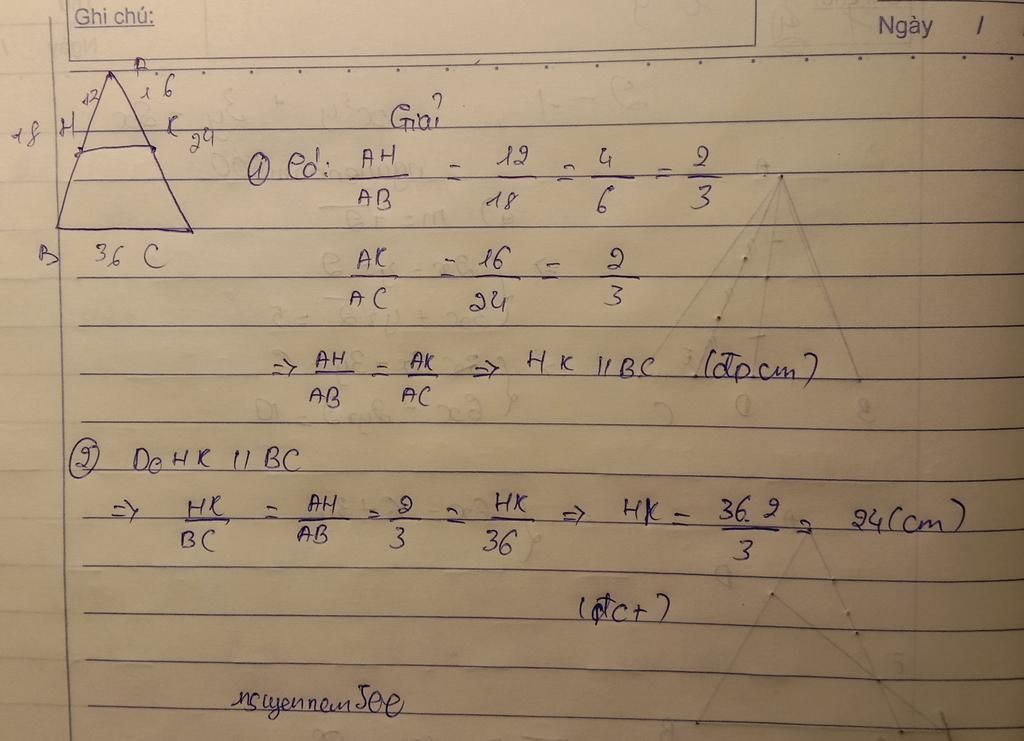 Ghi chú:
Ngày /
A
12 16
18 H K 24
B 36 C
Giải
① Có: AH/AB = 12/18 = 4/6 = 2/3
AK/AC = 16/24 = 2/3
=> AH/AB = AK/AC => HK // BC (đpcm)
② Do HK // BC
=> HK/BC = AH/AB = 2/3 = HK/36 => HK = 36.2/3 = 24 (cm)